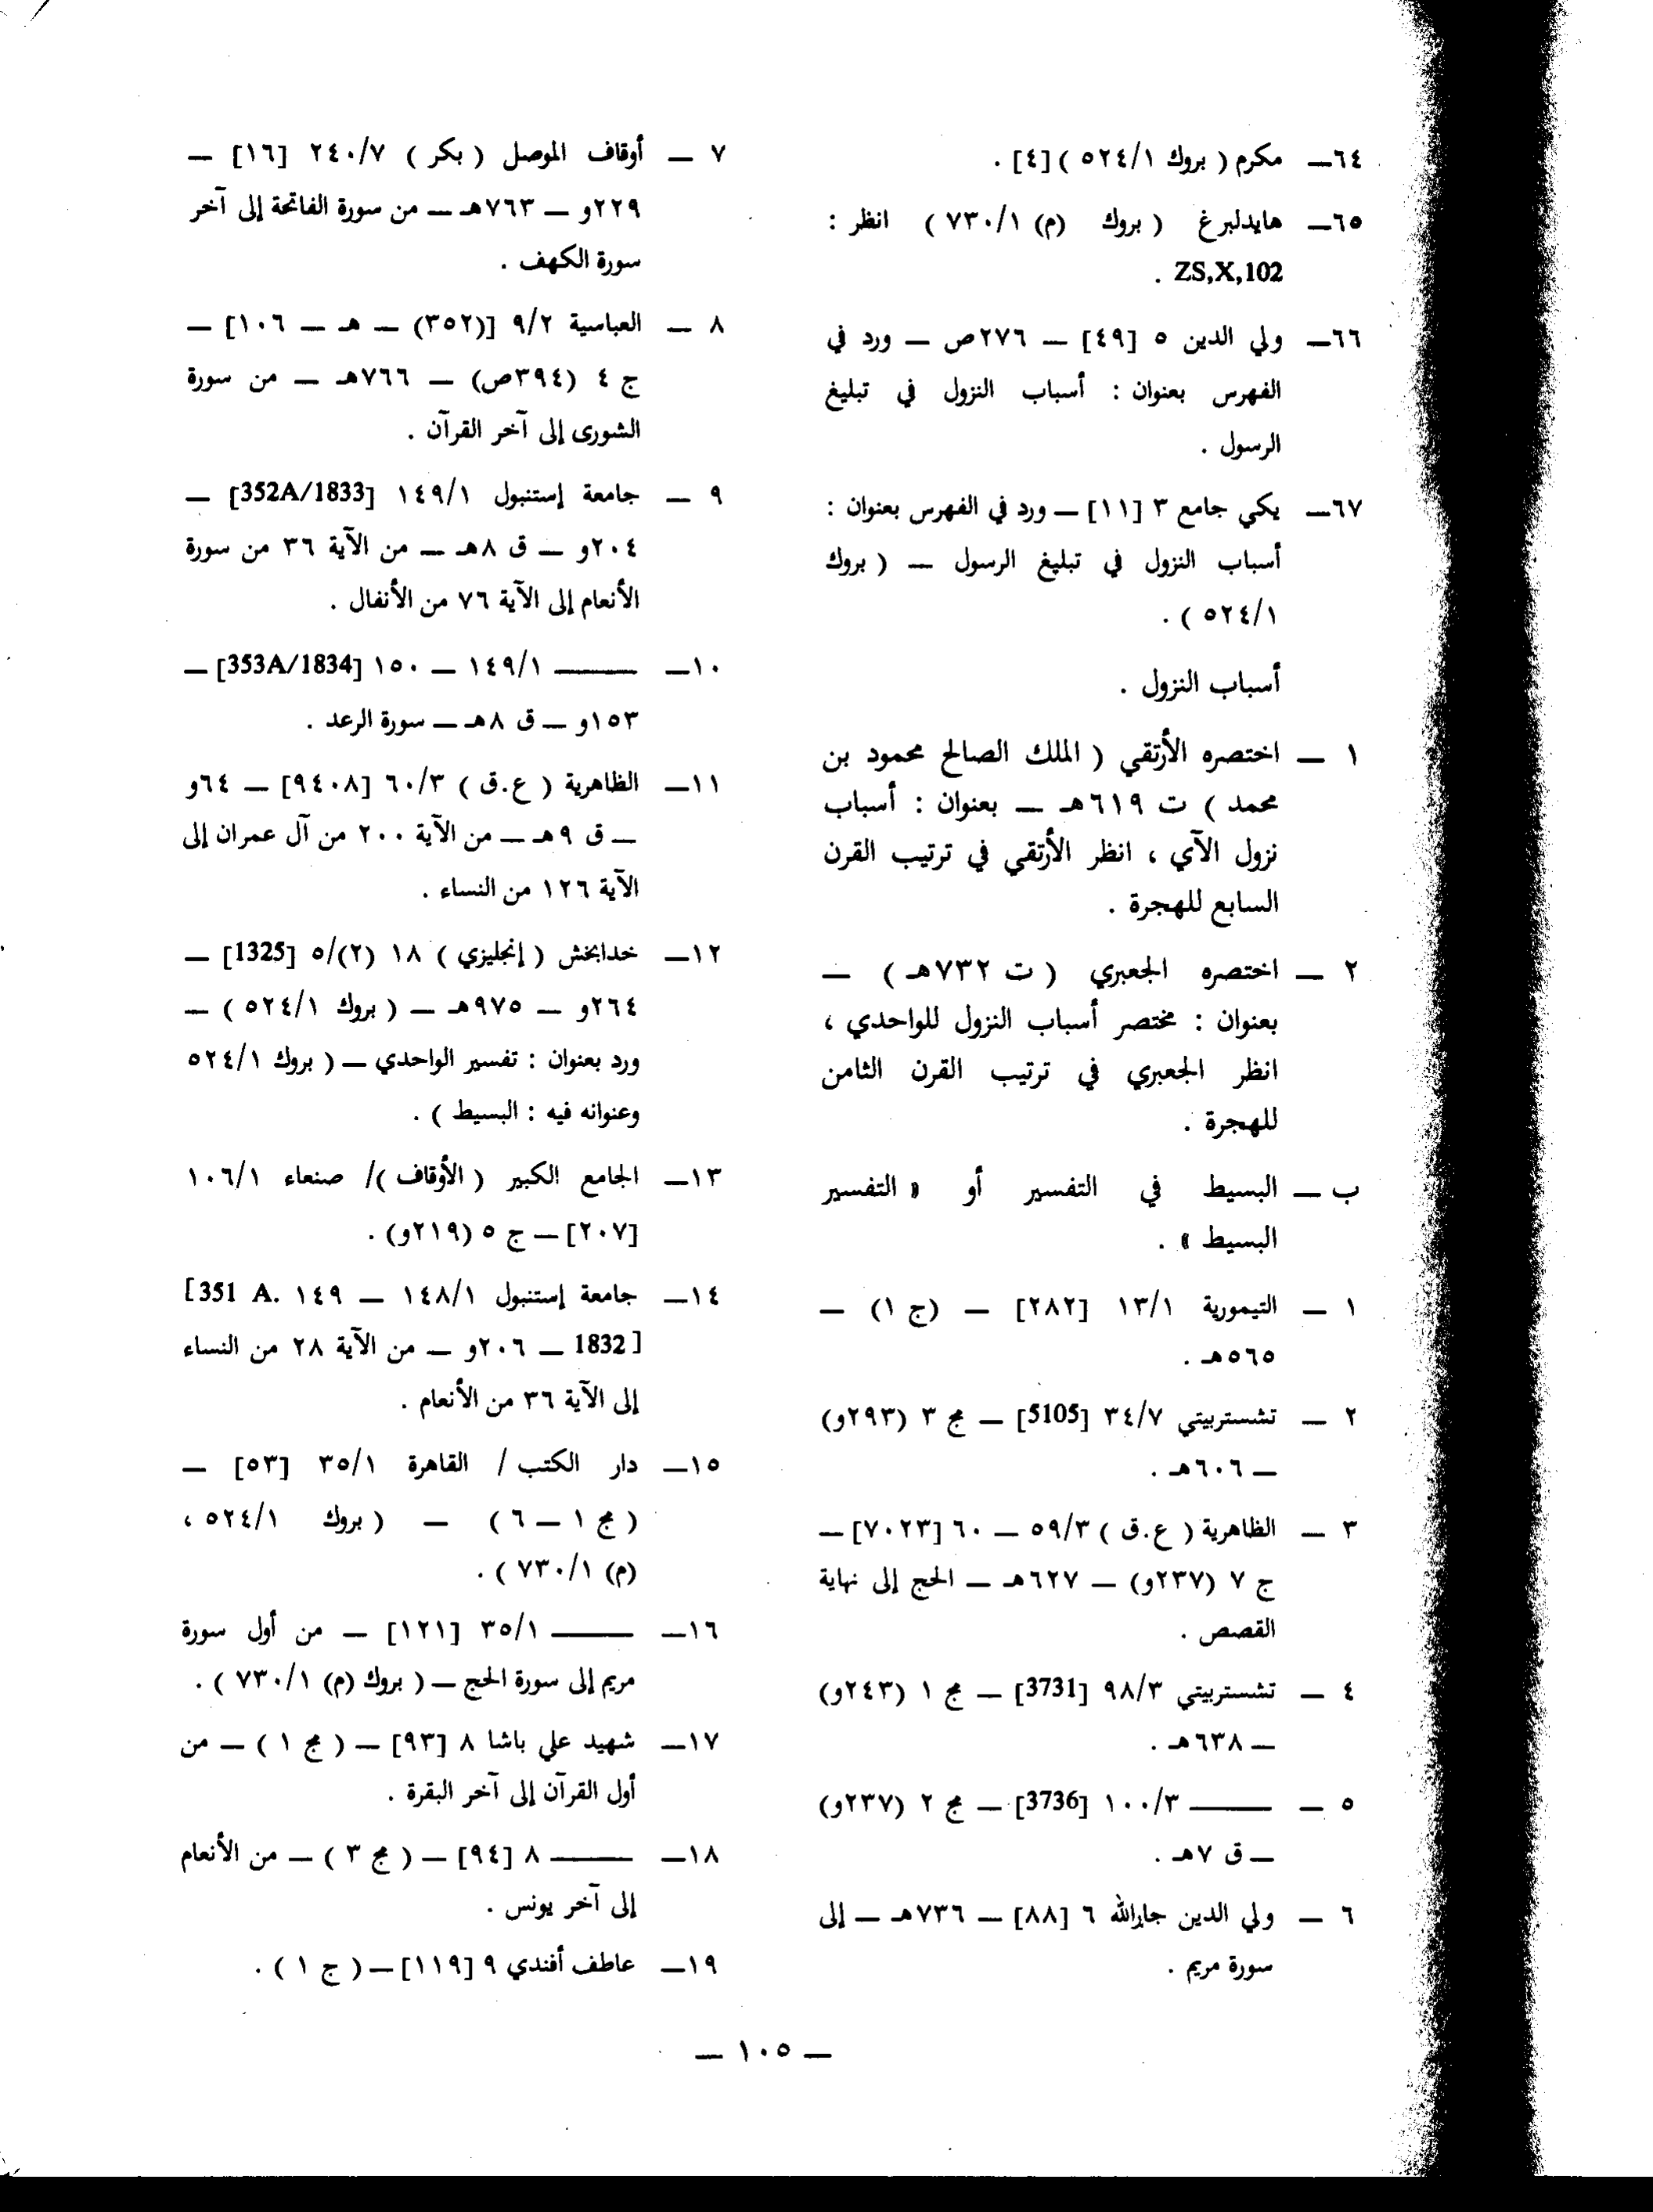 ٦٤ــ مكرم ( بروك ٥٢٤/١ ) [٤] .
٦٥ــ هايدلبرغ ( بروك (م) ٧٣٠/١ ) انظر :
ZS,X,102 .
٦٦ــ ولي الدين ٥ [٤٩] ــ ٢٧٦ص ــ ورد في
الفهرس بعنوان : أسباب النزول في تبليغ
الرسول .
٦٧ــ يكي جامع ٣ [١١] ــ ورد في الفهرس بعنوان :
أسباب النزول في تبليغ الرسول ــ ( بروك
٥٢٤/١ ) .
أسباب النزول .
١ ــ اختصره الأرتقي ( الملك الصالح محمود بن
محمد ) ت ٦١٩هـ ــ بعنوان : أسباب
نزول الآي ، انظر الأرتقي في ترتيب القرن
السابع للهجرة .
٢ ــ اختصره الجعبري ( ت ٧٣٢هـ ) ــ
بعنوان : مختصر أسباب النزول للواحدي ،
انظر الجعبري في ترتيب القرن الثامن
للهجرة .
ب ــ البسيط في التفسير أو « التفسير
البسيط » .
١ ــ التيمورية ١٣/١ [٢٨٢] ــ (ج ١) ــ
٥٦٥هـ .
٢ ــ تشستربيتي ٣٤/٧ [5105] ــ مج ٣ (٢٩٣و)
ــ ٦٠٦هـ .
٣ ــ الظاهرية ( ع.ق ) ٥٩/٣ ــ ٦٠ [٧٠٢٣] ــ
ج ٧ (٢٣٧و) ــ ٦٢٧هـ ــ الحج إلى نهاية
القصص .
٤ ــ تشستربيتي ٩٨/٣ [3731] ــ مج ١ (٢٤٣و)
ــ ٦٣٨هـ .
٥ ــ ــــــــ ١٠٠/٣ [3736] ــ مج ٢ (٢٣٧و)
ــ ق ٧هـ .
٦ ــ ولي الدين جارالله ٦ [٨٨] ــ ٧٣٦هـ ــ إلى
سورة مريم .
٧ ــ أوقاف الموصل ( بكر ) ٢٤٠/٧ [١٦] ــ
٢٢٩و ــ ٧٦٣هـ ــ من سورة الفاتحة إلى آخر
سورة الكهف .
٨ ــ العباسية ٩/٢ [(٣٥٢) ــ هـ ــ ١٠٦] ــ
ج ٤ (٣٩٤ص) ــ ٧٦٦هـ ــ من سورة
الشورى إلى آخر القرآن .
٩ ــ جامعة إستنبول ١٤٩/١ [352A/1833] ــ
٢٠٤و ــ ق ٨هـ ــ من الآية ٣٦ من سورة
الأنعام إلى الآية ٧٦ من الأنفال .
١٠ــ ــــــــ ١٤٩/١ ــ ١٥٠ [353A/1834] ــ
١٥٣و ــ ق ٨هـ ــ سورة الرعد .
١١ــ الظاهرية ( ع.ق ) ٦٠/٣ [٩٤٠٨] ــ ٦٤و
ــ ق ٩هـ ــ من الآية ٢٠٠ من آل عمران إلى
الآية ١٢٦ من النساء .
١٢ــ خدابخش ( إنجليزي ) ١٨ (٢)/٥ [1325] ــ
٢٦٤و ــ ٩٧٥هـ ــ ( بروك ٥٢٤/١ ) ــ
ورد بعنوان : تفسير الواحدي ــ ( بروك ٥٢٤/١
وعنوانه فيه : البسيط ) .
١٣ــ الجامع الكبير ( الأوقاف )/ صنعاء ١٠٦/١
[٢٠٧] ــ ج ٥ (٢١٩و) .
١٤ــ جامعة إستنبول ١٤٨/١ ــ ١٤٩ [351 A.
1832] ــ ٢٠٦و ــ من الآية ٢٨ من النساء
إلى الآية ٣٦ من الأنعام .
١٥ــ دار الكتب / القاهرة ٣٥/١ [٥٣] ــ
( مج ١ ــ ٦ ) ــ ( بروك ٥٢٤/١ ،
(م) ٧٣٠/١ ) .
١٦ــ ــــــــ ٣٥/١ [١٢١] ــ من أول سورة
مريم إلى سورة الحج ــ ( بروك (م) ٧٣٠/١ ) .
١٧ــ شهيد علي باشا ٨ [٩٣] ــ ( مج ١ ) ــ من
أول القرآن إلى آخر البقرة .
١٨ــ ــــــــ ٨ [٩٤] ــ ( مج ٣ ) ــ من الأنعام
إلى آخر يونس .
١٩ــ عاطف أفندي ٩ [١١٩] ــ ( ج ١ ) .
ــ ١٠٥ ــ